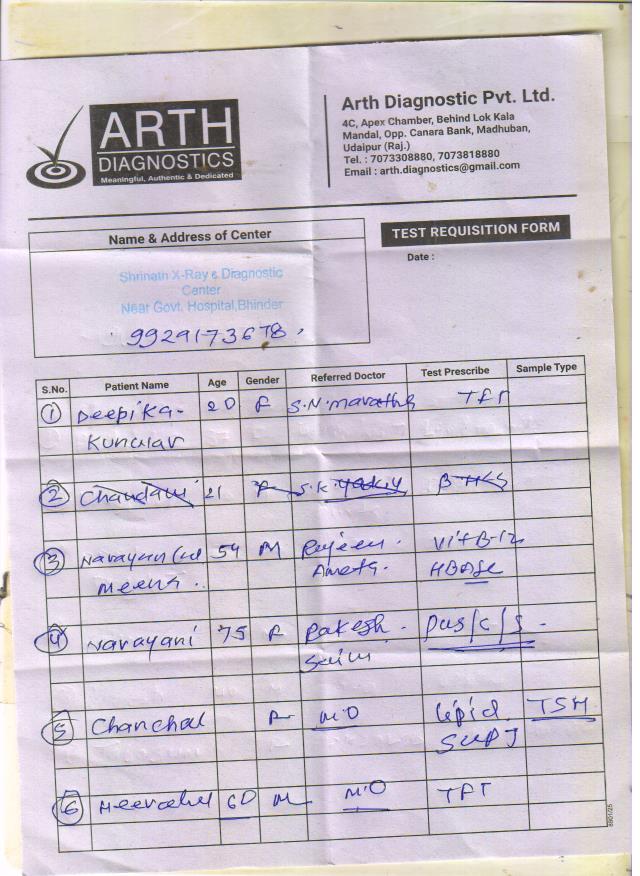 ARTH
DIAGNOSTICS
Meaningful, Authentic & Dedicated
Arth Diagnostic Pvt. Ltd.
4C, Apex Chamber, Behind Lok Kala
Mandal, Opp. Canara Bank, Madhuban,
Udaipur (Raj.)
Tel. : 7073308880, 7073818880
Email : arth.diagnostics@gmail.com
Name & Address of Center
TEST REQUISITION FORM
Shrinath X-Ray & Diagnostic
Center
Near Govt. Hospital,Bhinder
9929173678
Date :
S.No. Patient Name Age Gender Referred Doctor Test Prescribe Sample Type
1 Deepika- 20 F S.N. TFT
2 Chandani 21 F S.K.
3 54 M Vit B-12
Meena
4 Narayani 75 F Rakesh Pus/c/s
5 Chanchal F MO Lipid TSH
6 60 M MO TFT
8901/25